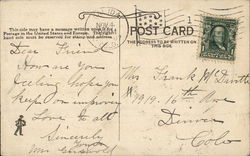 This side may have a message written upon it
Postage in the United States and Europe.
hand side must be reserved for stamp and address.
POST CARD
THE ADDRESS TO BE WRITTEN ON
THIS SIDE.
Dear Friend
How are you
feeling hope you
keep on improving
Love to all
Sincerely
Mrs.
Mrs Frank
1919. 16th Ave
Denver
Colo